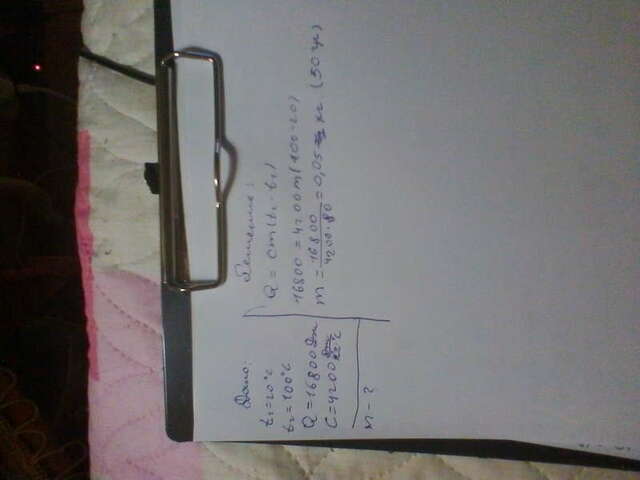 Дано:
t₁=20°C
t₂=100°C
Q=16800 Дж
C=4200 Дж/кг°C
m-?
Решение:
Q = cm(t₂-t₁)
16800=4200m(100-20)
m = 16800/4200·80 = 0,05 кг (50 гр)